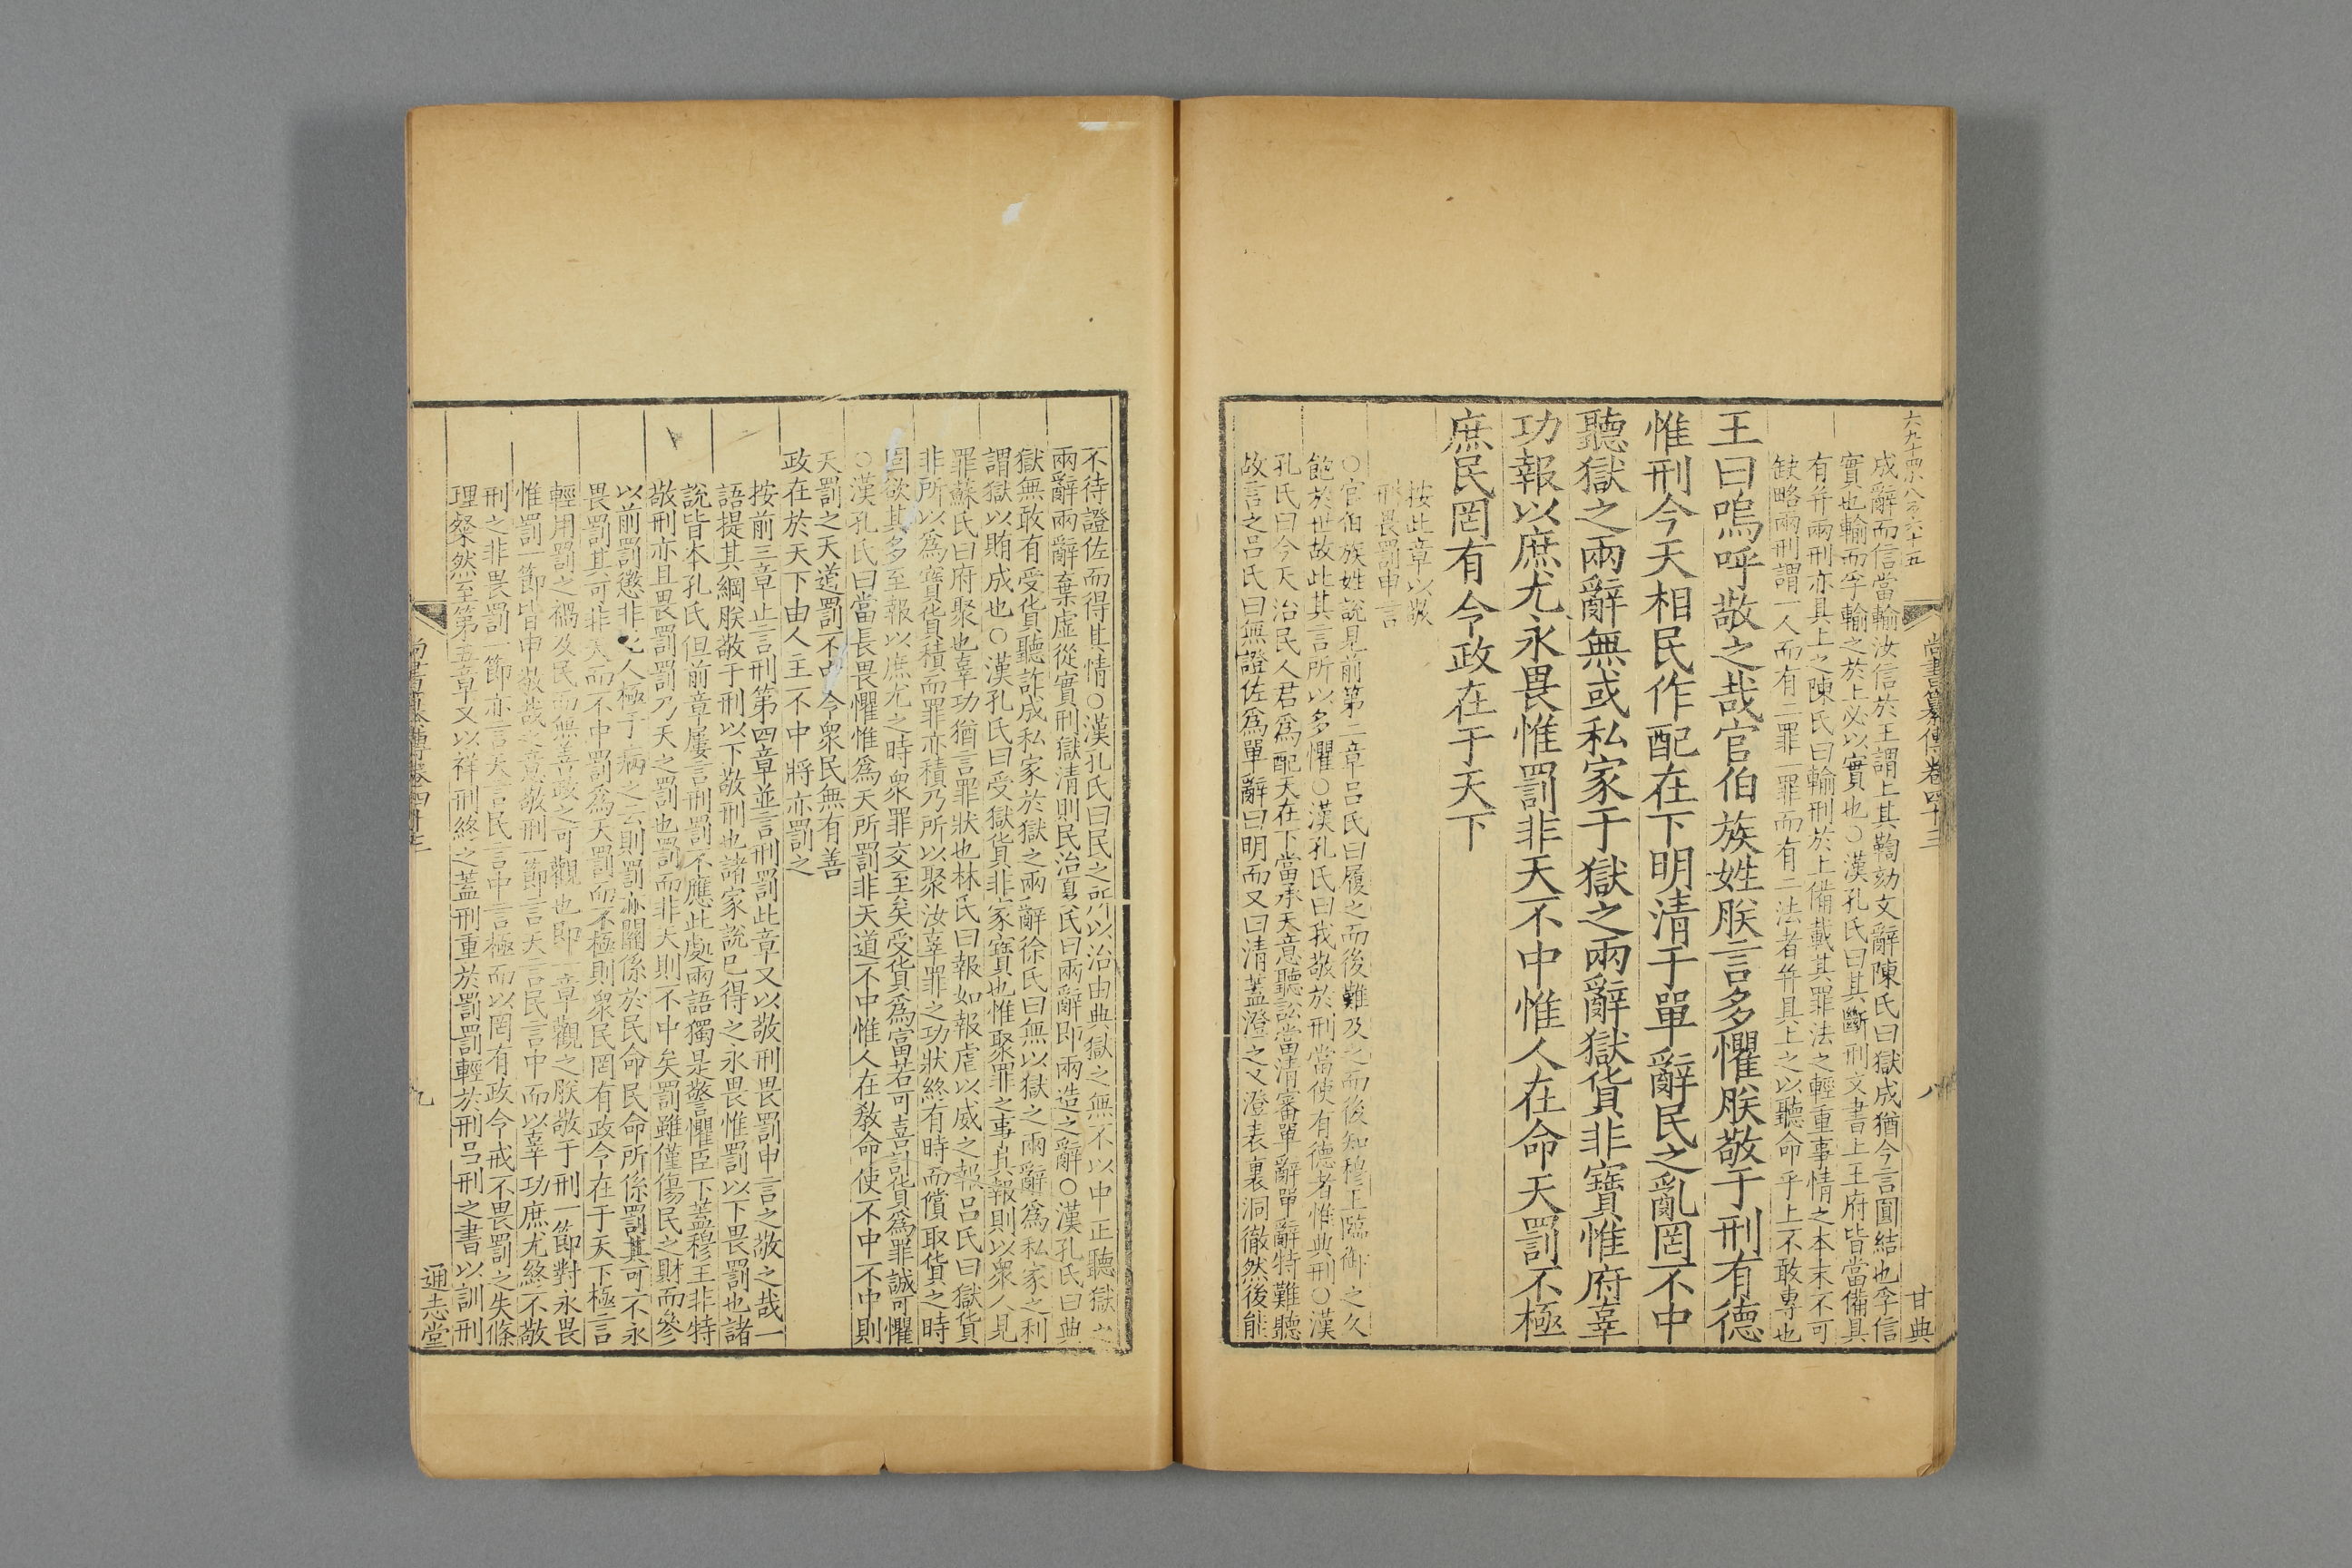 尚書纂傳卷四十三
八
甘典
成辭而信當輸汝信於王謂上其鞫劾文辭陳氏曰獄成猶今言圓結也孚信
實也輸而孚輸之於上必以實也○漢孔氏曰其斷刑文書上王府皆當備具
有并兩刑亦具上之陳氏曰輸刑於上備載其罪法之輕重事情之本末不可
缺略兩刑謂一人而有二罪一罪而有二法者并具上之以聽命乎上不敢專也
王曰嗚呼敬之哉官伯族姓朕言多懼朕敬于刑有德
惟刑今天相民作配在下明清于單辭民之亂罔不中
聽獄之兩辭無或私家于獄之兩辭獄貨非寶惟府辜
功報以庶尤永畏惟罰非天不中惟人在命天罰不極
庶民罔有令政在于天下
按此章以敬
刑畏罰申言
○官伯族姓說見前第二章呂氏曰履之而後難及之而後知穆王臨御之久
飽於世故此其言所以多懼○漢孔氏曰我敬於刑當使有德者惟典刑○漢
孔氏曰今天治民人君為配天在下當承天意聽訟當清審單辭單辭特難聽
故言之呂氏曰無證佐為單辭曰明而又曰清蓋澄之又澄表裏洞徹然後能
不待證佐而得其情○漢孔氏曰民之所以治由典獄之無不以中正聽獄之
兩辭兩辭棄虛從實刑獄清則民治夏氏曰兩辭即兩造之辭○漢孔氏曰典
獄無敢有受貨聽詐成私家於獄之兩辭徐氏曰無以獄之兩辭為私家之利
謂獄以賄成也○漢孔氏曰受獄貨非家寶也惟聚罪之事其報則以衆人見
罪蘇氏曰府聚也辜功猶言罪狀也林氏曰報如報虐以威之報呂氏曰獄貨
非所以為寶貨積而罪亦積乃所以聚汝辜罪之功狀終有時而償取貨之時
固欲其多至報以庶尤之時衆罪交至矣受貨為富若可喜計貨為罪誠可懼
○漢孔氏曰當長畏懼惟為天所罰非天道不中惟人在教命使不中不中則
天罰之天道罰不中令衆民無有善
政在於天下由人主不中將亦罰之
按前三章止言刑第四章並言刑罰此章又以敬刑畏罰申言之敬之哉一
語提其綱朕敬于刑以下敬刑也諸家說已得之永畏惟罰以下畏罰也諸
說皆本孔氏但前章屢言刑罰不應此處兩語獨是警懼臣下蓋穆王非特
敬刑亦且畏罰罰乃天之罰也罰而非天則不中矣罰雖僅傷民之財而參
以前罰懲非死人極于病之云則罰亦關係於民命民命所係罰其可不永
畏罰其可非天而不中罰為天罰而不極則衆民罔有政令在于天下極言
輕用罰之禍及民而無善政之可觀也即一章觀之朕敬于刑一節對永畏
惟罰一節皆申敬哉之意敬刑一節言天言民言中而以辜功庶尤終不敬
刑之非畏罰一節亦言天言民言中言極而以罔有政令戒不畏罰之失條
理粲然至第五章又以祥刑終之蓋刑重於罰罰輕於刑呂刑之書以訓刑
九
通志堂